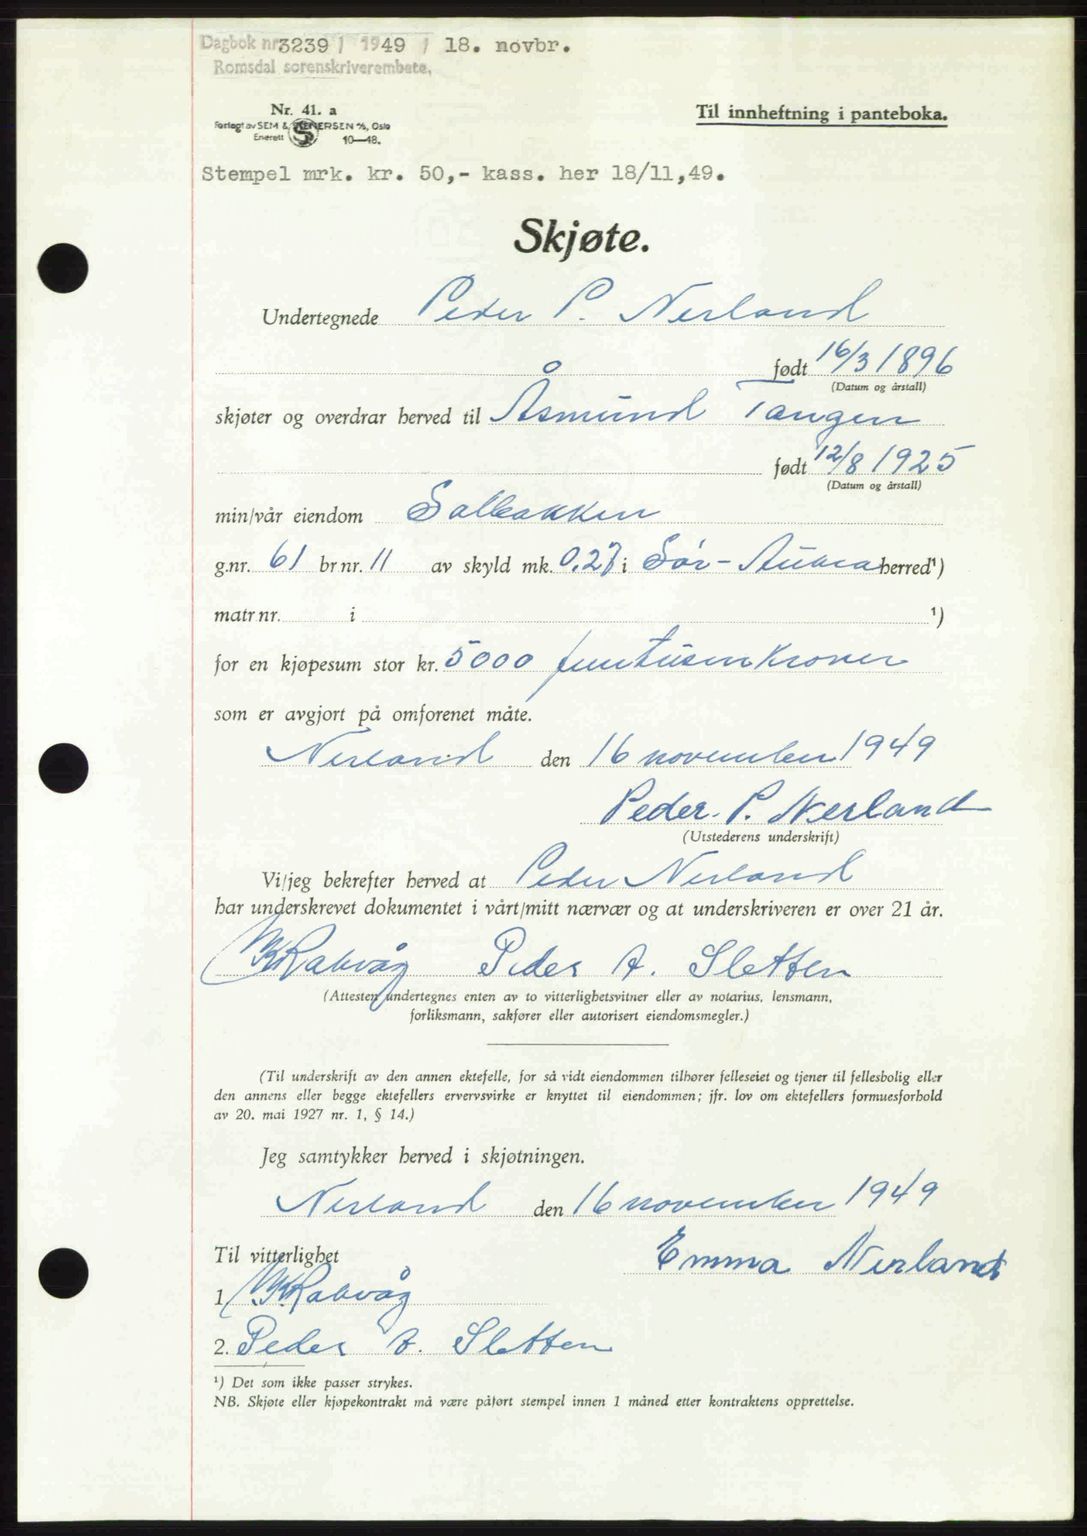 Dagbok nr 3239 / 1949 / 18. novbr.
Romsdal sorenskriverembete.
Nr. 41. a
Forlagt av SEM & STENERSEN A/S, Oslo
Enerett 10—48.
Til innheftning i panteboka.
Stempel mrk. kr. 50,- kass. her 18/11,49.
Skjøte.
Undertegnede Peder P. Nerland
født 16/3 1896
(Datum og årstall)
skjøter og overdrar herved til Åsmund Tangen
født 12/8 1925
(Datum og årstall)
min/vår eiendom Solbakken
g.nr. 61 br nr. 11 av skyld mk. 0.27 i Sør-Aukra herred¹)
matr nr. i ¹)
for en kjøpesum stor kr. 5000 femtusenkroner
som er avgjort på omforenet måte.
Nerland den 16 november 1949
Peder P. Nerland
(Utstederens underskrift)
Vi/jeg bekrefter herved at Peder Nerland
har underskrevet dokumentet i vårt/mitt nærvær og at underskriveren er over 21 år.
Rakvåg Peder A. Sletten
(Attesten undertegnes enten av to vitterlighetsvitner eller av notarius, lensmann,
forliksmann, sakfører eller autorisert eiendomsmegler.)
(Til underskrift av den annen ektefelle, for så vidt eiendommen tilhører felleseiet og tjener til fellesbolig eller
den annens eller begge ektefellers ervervsvirke er knyttet til eiendommen; jfr. lov om ektefellers formuesforhold
av 20. mai 1927 nr. 1, § 14.)
Jeg samtykker herved i skjøtningen.
Nerland den 16 november 1949
Emma Nerland
Til vitterlighet
1. Rakvåg
2. Peder A. Sletten
¹) Det som ikke passer strykes.
NB. Skjøte eller kjøpekontrakt må være påført stempel innen 1 måned etter kontraktens opprettelse.